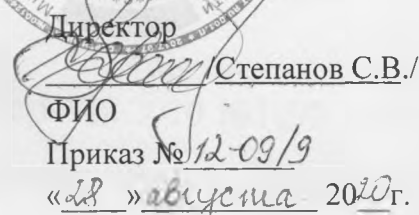 Директор
/Степанов С.В./
ФИО
Приказ №12-09/9
«28» августа 2020г.